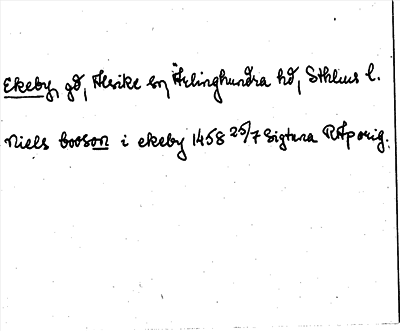 Ekeby, gd, Alsike sn, Ärlinghundra hd, Sthlms l.
Niels booson i ekeby 1458 25/7 Sigtuna RAp orig.